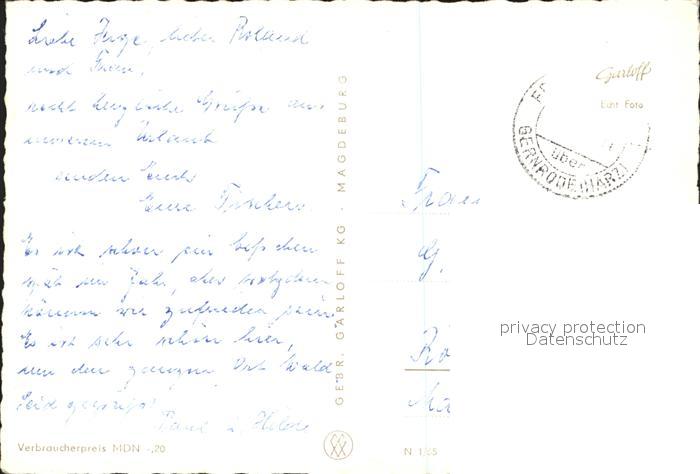 Liebe Inge, lieber Roland
und Frau,
recht herzliche Grüße aus
unserem Urlaub
senden Euch
Eure Fischers.
Es ist schon ein bißchen
spät im Jahr, aber trotzdem
können wir zufrieden sein.
Es ist sehr schön hier,
um den ganzen Ort Wald
Seid gegrüßt
Paul u. Hilde
Verbraucherpreis MDN -,20
GEBR. GARLOFF KG · MAGDEBURG
N 1/65
Garloff
Echt Foto
über
GERNRODE (HARZ)
Frau
G.
Ro
Ma
privacy protection
Datenschutz